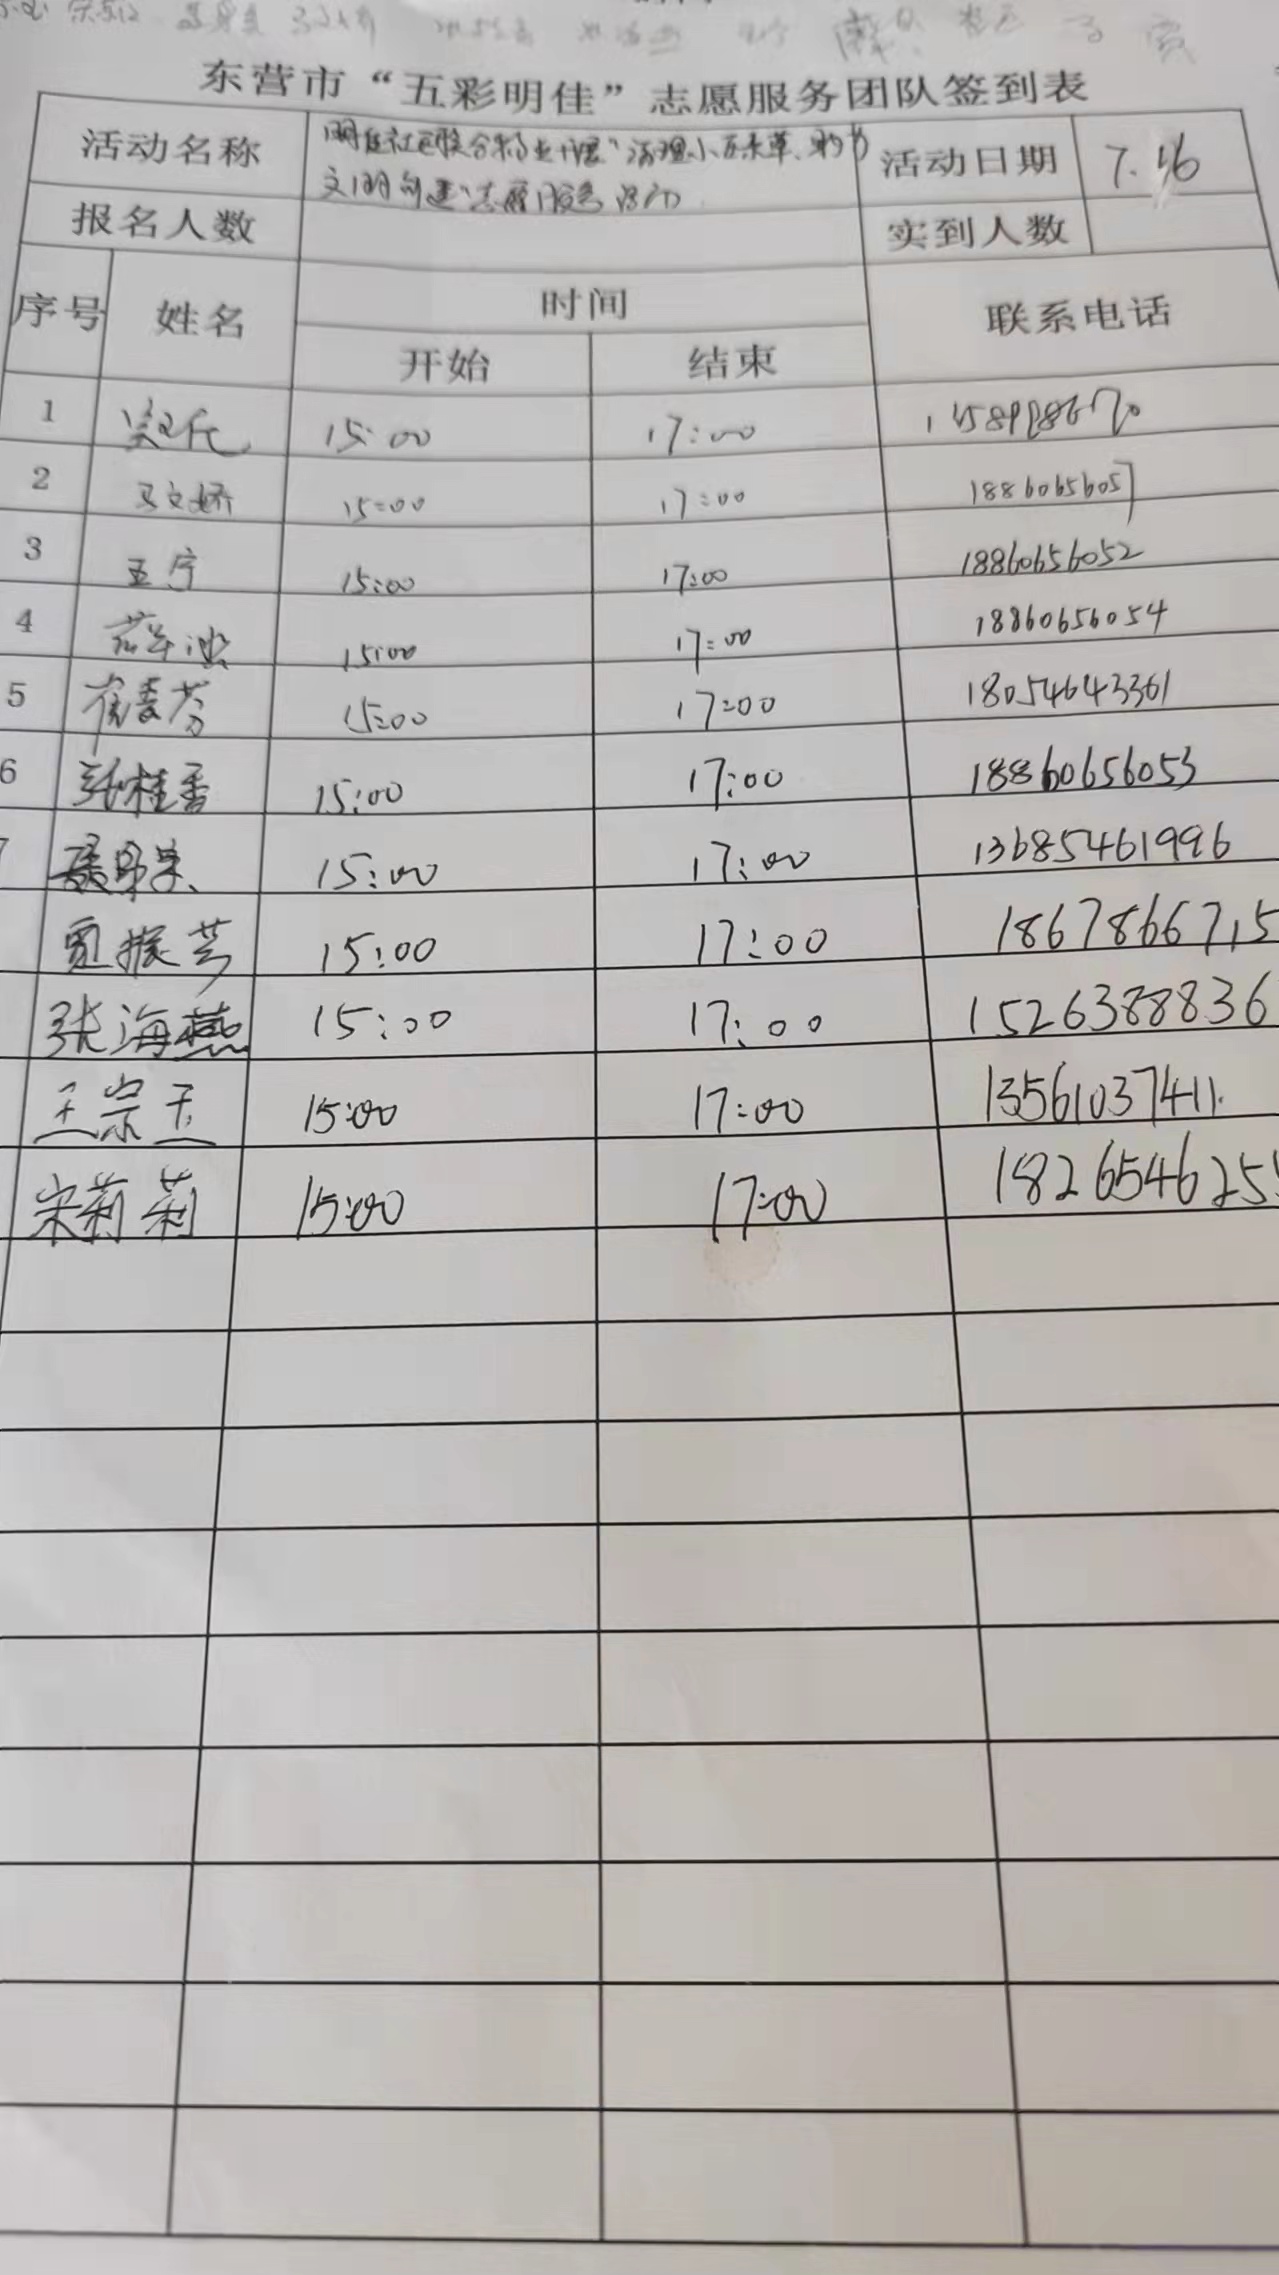 东营市“五彩明佳”志愿服务团队签到表
活动名称 活动日期 7.16
文明创建”志愿服务活动
报名人数 实到人数
序号 姓名 时间 联系电话
开始 结束
1 15:00 17:00
2 马文娇 15:00 17:00 18860656057
3 王宁 15:00 17:00 18860656052
4 15:00 17:00 18860656054
5 崔委芬 15:00 17:00 18054643361
6 张桂香 15:00 17:00 18860656053
15:00 17:00 13685461996
贾振芳 15:00 17:00 1867866715
张海燕 15:00 17:00 1526388836
王宗玉 15:00 17:00 13561037411
宋莉莉 15:00 17:00 1826546255